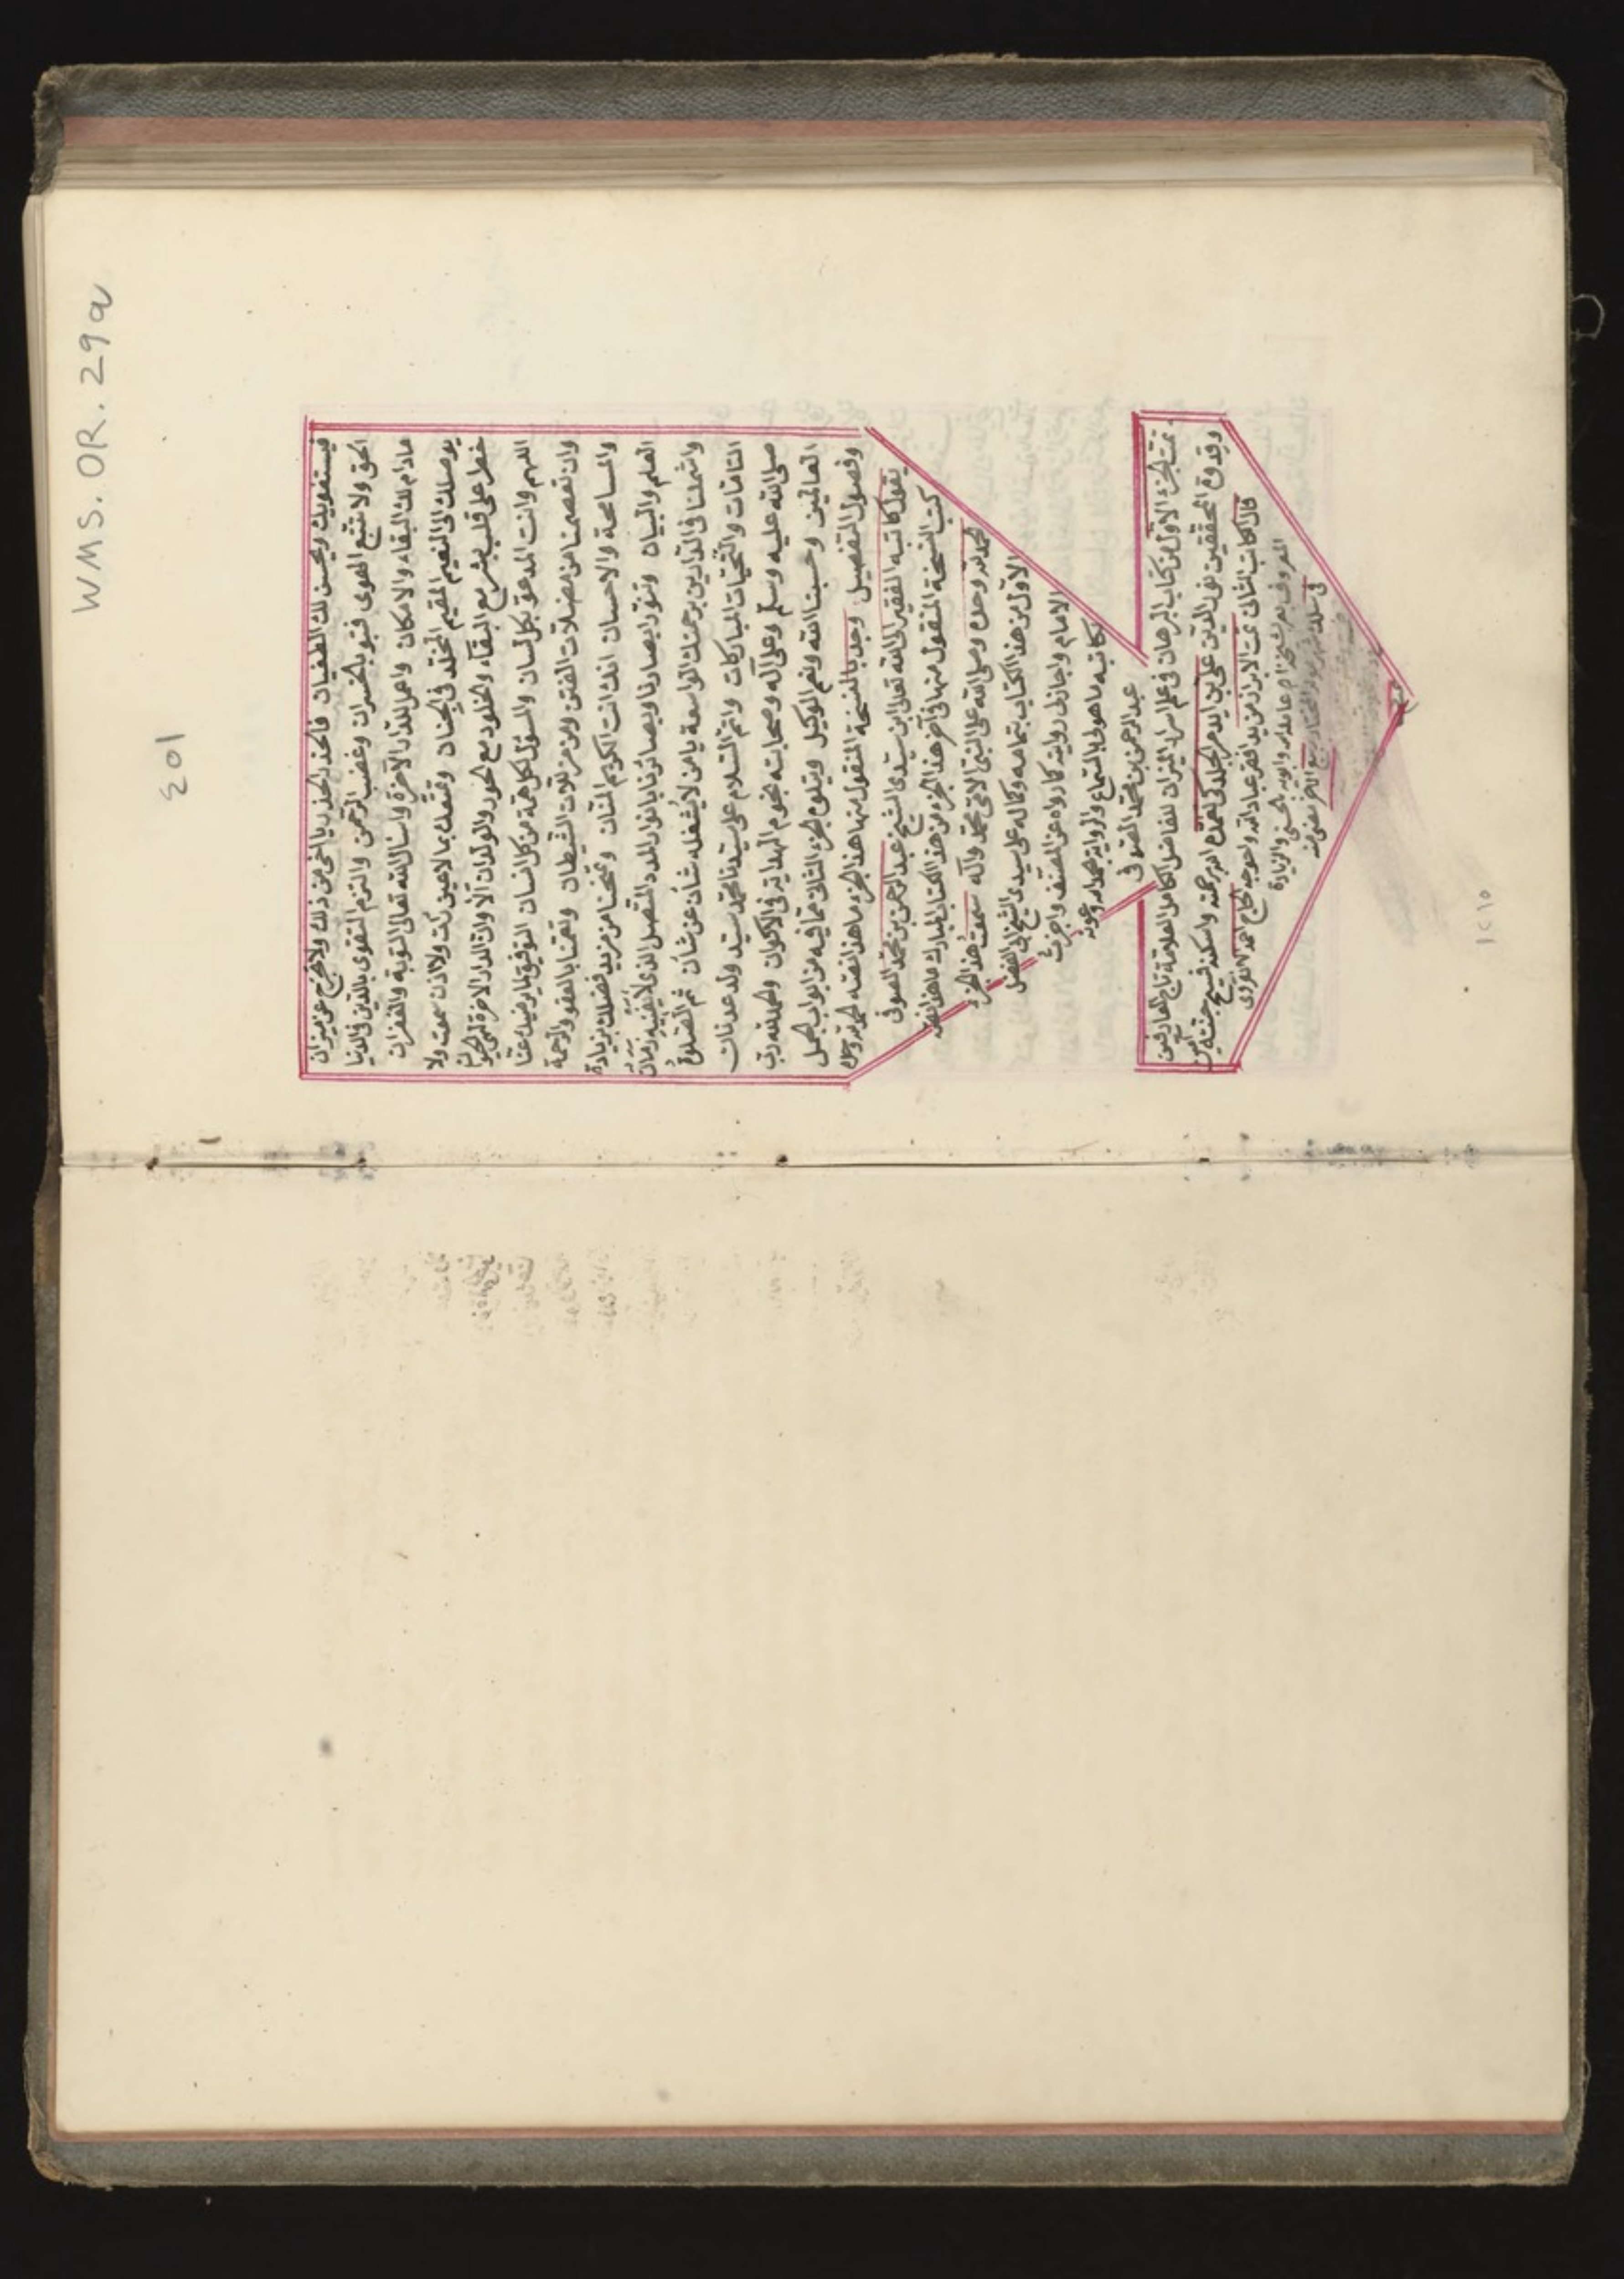 WMS. OR. 29a
٤٥١
فيستغويك ويحسن لك الطغيان فالحذر الحذر يا اخى من ذلك ولا تخرج عن ميزان
الحق ولا تتبع الهوى فتبو بالخسران وغضب الرحمن والتزم التقوى بالدين فى الدنيا
مادام لك البقاء والامكان واعمل للدار الآخرة واسال الله تعالى التوبة والغفران
يوصلك الى النعيم المقيم المخلد فى الجنان ومتعك بما لا عين رأت ولا اذن سمعت ولا
خطر على قلب بشر مع البقاء والخلود مع الحور والولدان الا وان الدار الاخرة لهى الحيوان
اللهم وانت المدعو بكل لسان والمسؤل لكل همة من كل انسان التوفيق لما يرضيك عنا
وان تعصمنا من مضلات الفتن ومن مزلات الشيطان وتعمنا بالعفو والرحمة
والمسامحة والاحسان انك انت الكريم المنان وتمنحنا من مزيد فضلك بزيادة
العلم والبيان وتنور ابصارنا وبصائرنا بانوار المدد المتصل الذى لا يفنيه زمان
واشملنا فى الدارين برحمتك الواسعة يا من لا يشغله شأن عن شأن ثم الصلاة
التامات والتحيات المباركات واتم السلام على سيدنا محمد سيد ولد عدنان
صلى الله عليه وسلم وعلى آله وصحابته نجوم الهداية فى الاكوان والحمد لله رب
العالمين وحسبنا الله ونعم الوكيل ويتلوه الجزء الثانى بما فيه من ابواب الجمل
وفصول التفصيل وجد بالنسخة المنقول منها هذا الجزء ما هذا نصه الحمد لله وحده
يقول كاتبه الفقير الى الله تعالى ابن سيدى الشيخ عبد الرحمن بن محمد الصوفى
كتب النسخة المنقول منها فى آخر هذا الجزء من هذا الكتاب المبارك ما هذا نصه
الحمد لله وحده وصلى الله على النبى الامى محمد وآله سمعت هذا الجزء
الاول من هذا الكتاب بتمامه وكماله على سيدى الشيخ ابى الفضل
الامام واجازنى روايته كما رواه عن المصنف واجزت
لكاتبه ما هو لى بالسماع والرواية بحمد الله وعونه
عبد الرحمن بن محمد الصوفى
تمت الجزء الاول من كتاب البرهان فى علم اسرار الميزان للفاضل الكامل العلامة تاج العارفين
وقدوة المحققين نور الدين على بن ايدمر الجلدكى تغمده الله برحمته واسكنه فسيح جنته آمين
قال الكاتب الثانى تمت الابراز من يد افقر عباد الله واحوجه الحاج احمد
والزيادة
١٢١٥